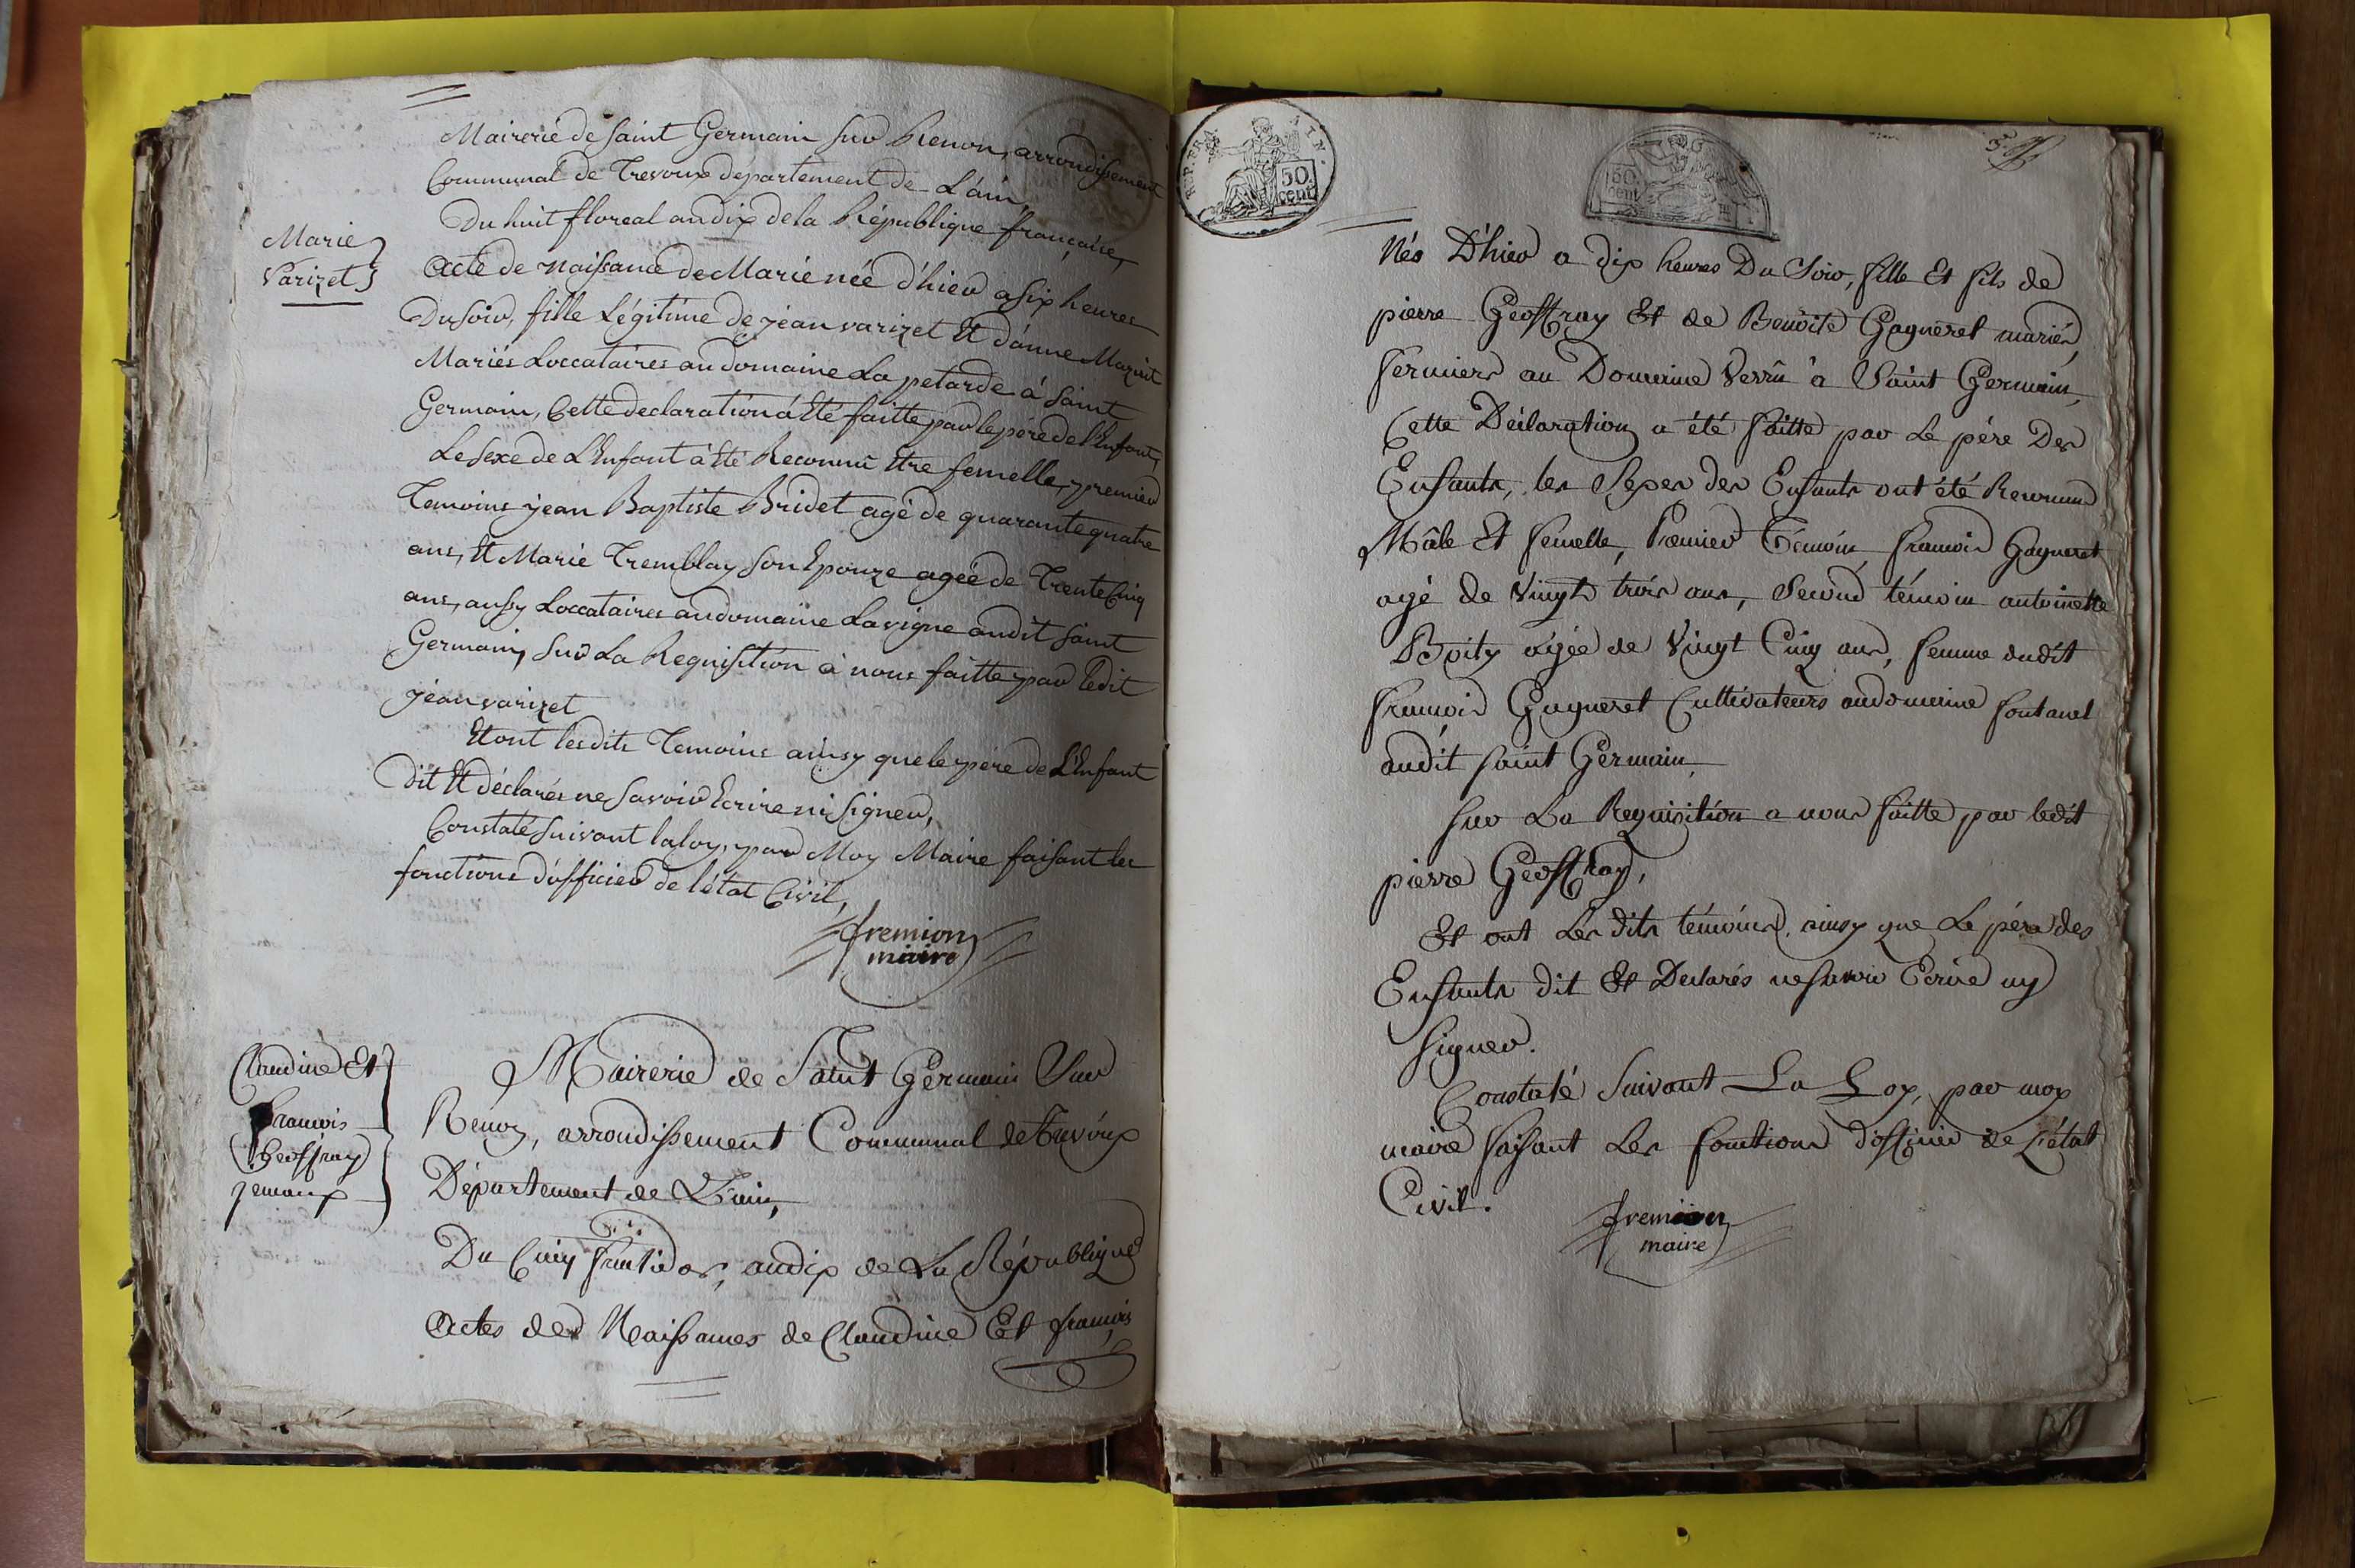 Mairerie de Saint Germain sur Renon, arrondissement
Communal de Trevoux département de L'ain,
Du huit floreal an dix de la République française,
Marie
Varizet
Acte de naissance de Marie née d'hier a six heures
Du soir, fille Légitime de jean varizet Et d'anne Mazuit
Mariés Loccataires au domaine La petarde à saint
Germain, Cette declaration à Eté faitte par le pére de l'Enfant,
Le sexe de L'Enfant à Eté Reconnû Etre femelle, premier
Temoins jean Baptiste Bridet agé de quarante quatre
ans, Et Marie Tremblay son Epouze agée de Trente Cinq
ans, aussy Loccataires au domaine Lavigne audit saint
Germain, sur La Requisition à nous faitte par ledit
jean varizet
Et ont lesdits Temoins ainsy que le pére de L'Enfant
dit Et déclarés ne savoir Ecrire ni signer,
Constaté suivant la loy, par Moy Maire faisant les
fonctions d'officier de l'état Civil,
fremion
maire
Claudine Et
francois
Geoffray
jemaux
Mairerie de Saint Germain Sur
Renon, arrondissement Communal de Trevoux
Département de L'ain,
Du Cinq fructidor, an dix de La République
Actes des Naissances de Claudine Et francois
R.P. FRA ATN.
50
cent
50
cent
Nés D'hier a dix heures Du Soir, fille Et fils de
pierre Geoffray Et de Benoite Gagneret mariés,
fermiers au Domaine Verrû à Saint Germain,
Cette Déclaration a été faitte par Le pére Des
Enfants, les Sexes des Enfants ont été Reconnus
Mâle Et femelle, Premier Témoin francois Gagneret
agé de Vingt trois ans, Second témoin antoinette
Boity agée de Vingt Cinq ans, femme dudit
francois Gagneret Cultivateurs au domaine fontanel
audit saint Germain,
sur La Requisition a nous faitte par ledit
pierre Geoffray,
Et ont Les dits témoins, ainsy que Le pére des
Enfants dit Et Declarés ne savoir Ecrire ny
signer.
Constaté Suivant La Loy, par moy
maire faisant Les fonctions d'officier de L'état
Civil.
fremion
maire